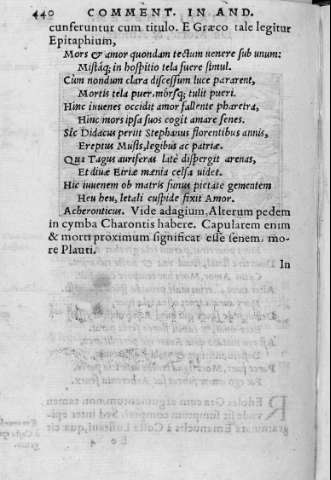 440 COMMENT. IN AND.
cunferuntur cum titulo. E Græco tale legitur
Epitaphium,
Mors & amor quondam tectum uenere sub unum:
Mistáq; in hospitio tela fuere simul.
Cùm nondum clara discessum luce pararent,
Mortis tela puer, mórsq; tulit pueri.
Hinc iuuenes occidit amor fallente pharetra,
Hinc mors ipsa suos cogit amare senes.
Sic Didacus periit Stephanus florentibus annis,
Ereptus Musis, legibus ac patriæ.
Qua Tagus auriferas latè dispergit arenas,
Et diuæ Eiriæ mænia celsa uidet.
Hic iuuenem ob matris funus pietate gementem
Heu heu, letali cuspide fixit Amor.
Acheronticus. Vide adagium, Alterum pedem
in cymba Charontis habere. Capularem enim
& morti proximum significat esse senem, mo-
re Plauti.
In